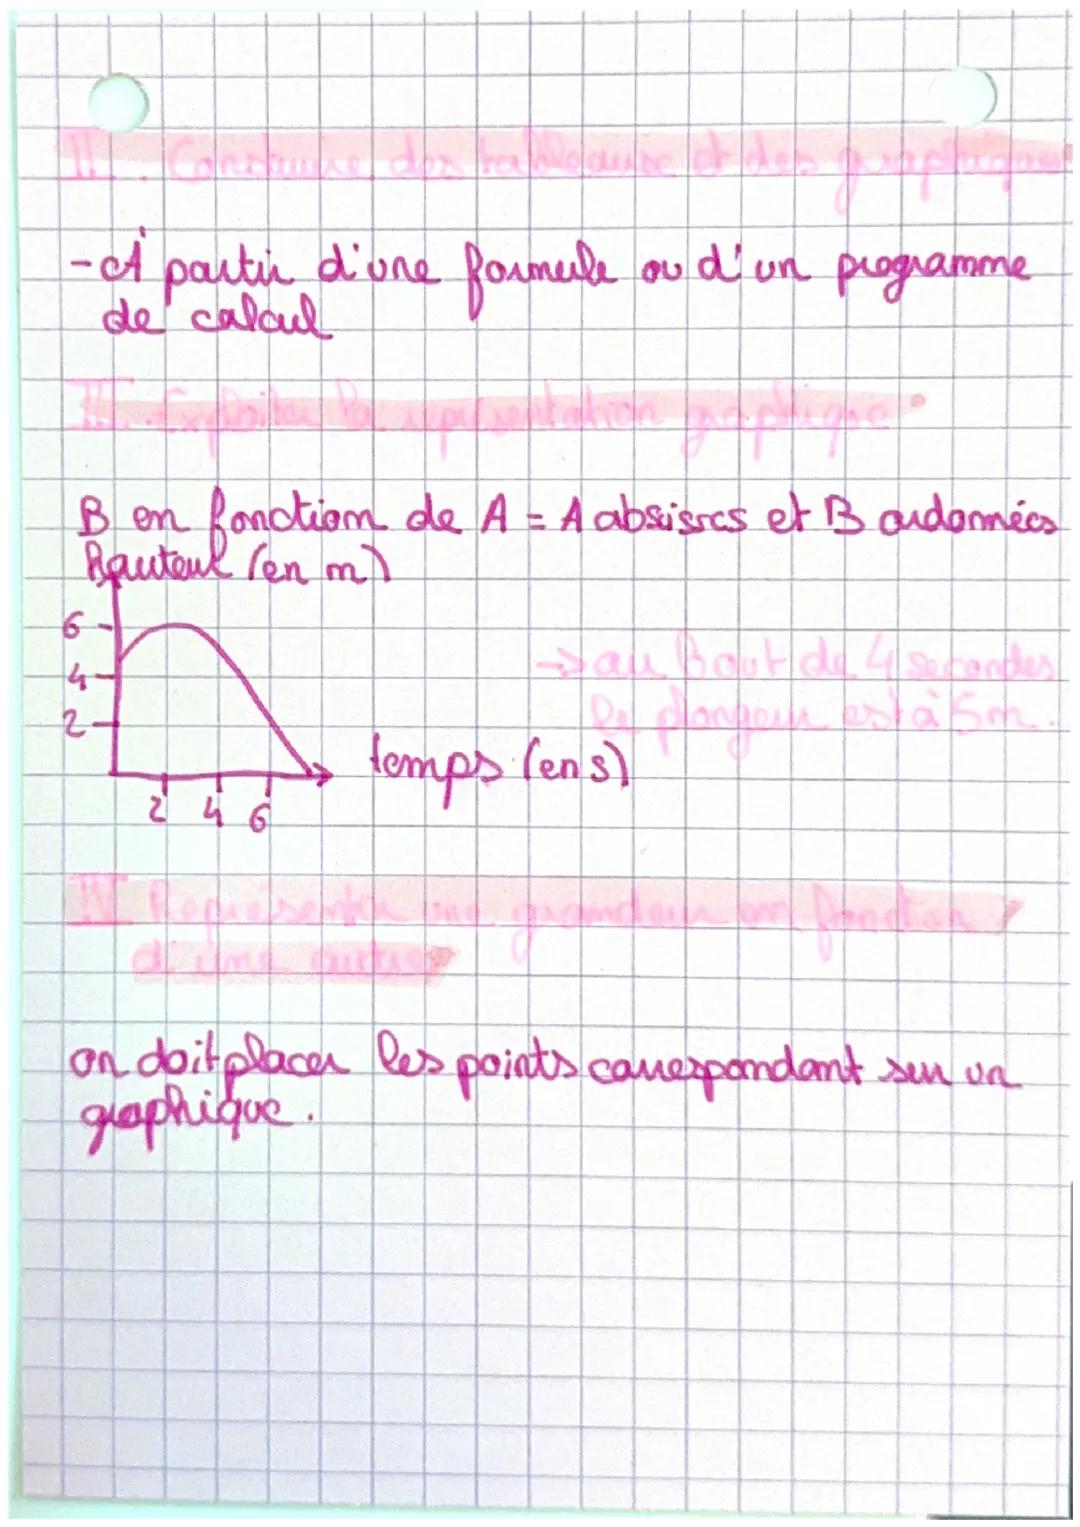 II. Construire des tableaux et des graphiques
- À partir d'une formule ou d'un programme
de calcul
III. Exploiter la représentation graphique
B en fonction de A = A absisses et B ordonnées
hauteur (en m)
6
4
2
→ au bout de 4 secondes
le plongeur est à 5m.
temps (en s)
2 4 6
IV Représenter une grandeur en fonction
d'une autre
on doit placer les points correspondant sur un
graphique.